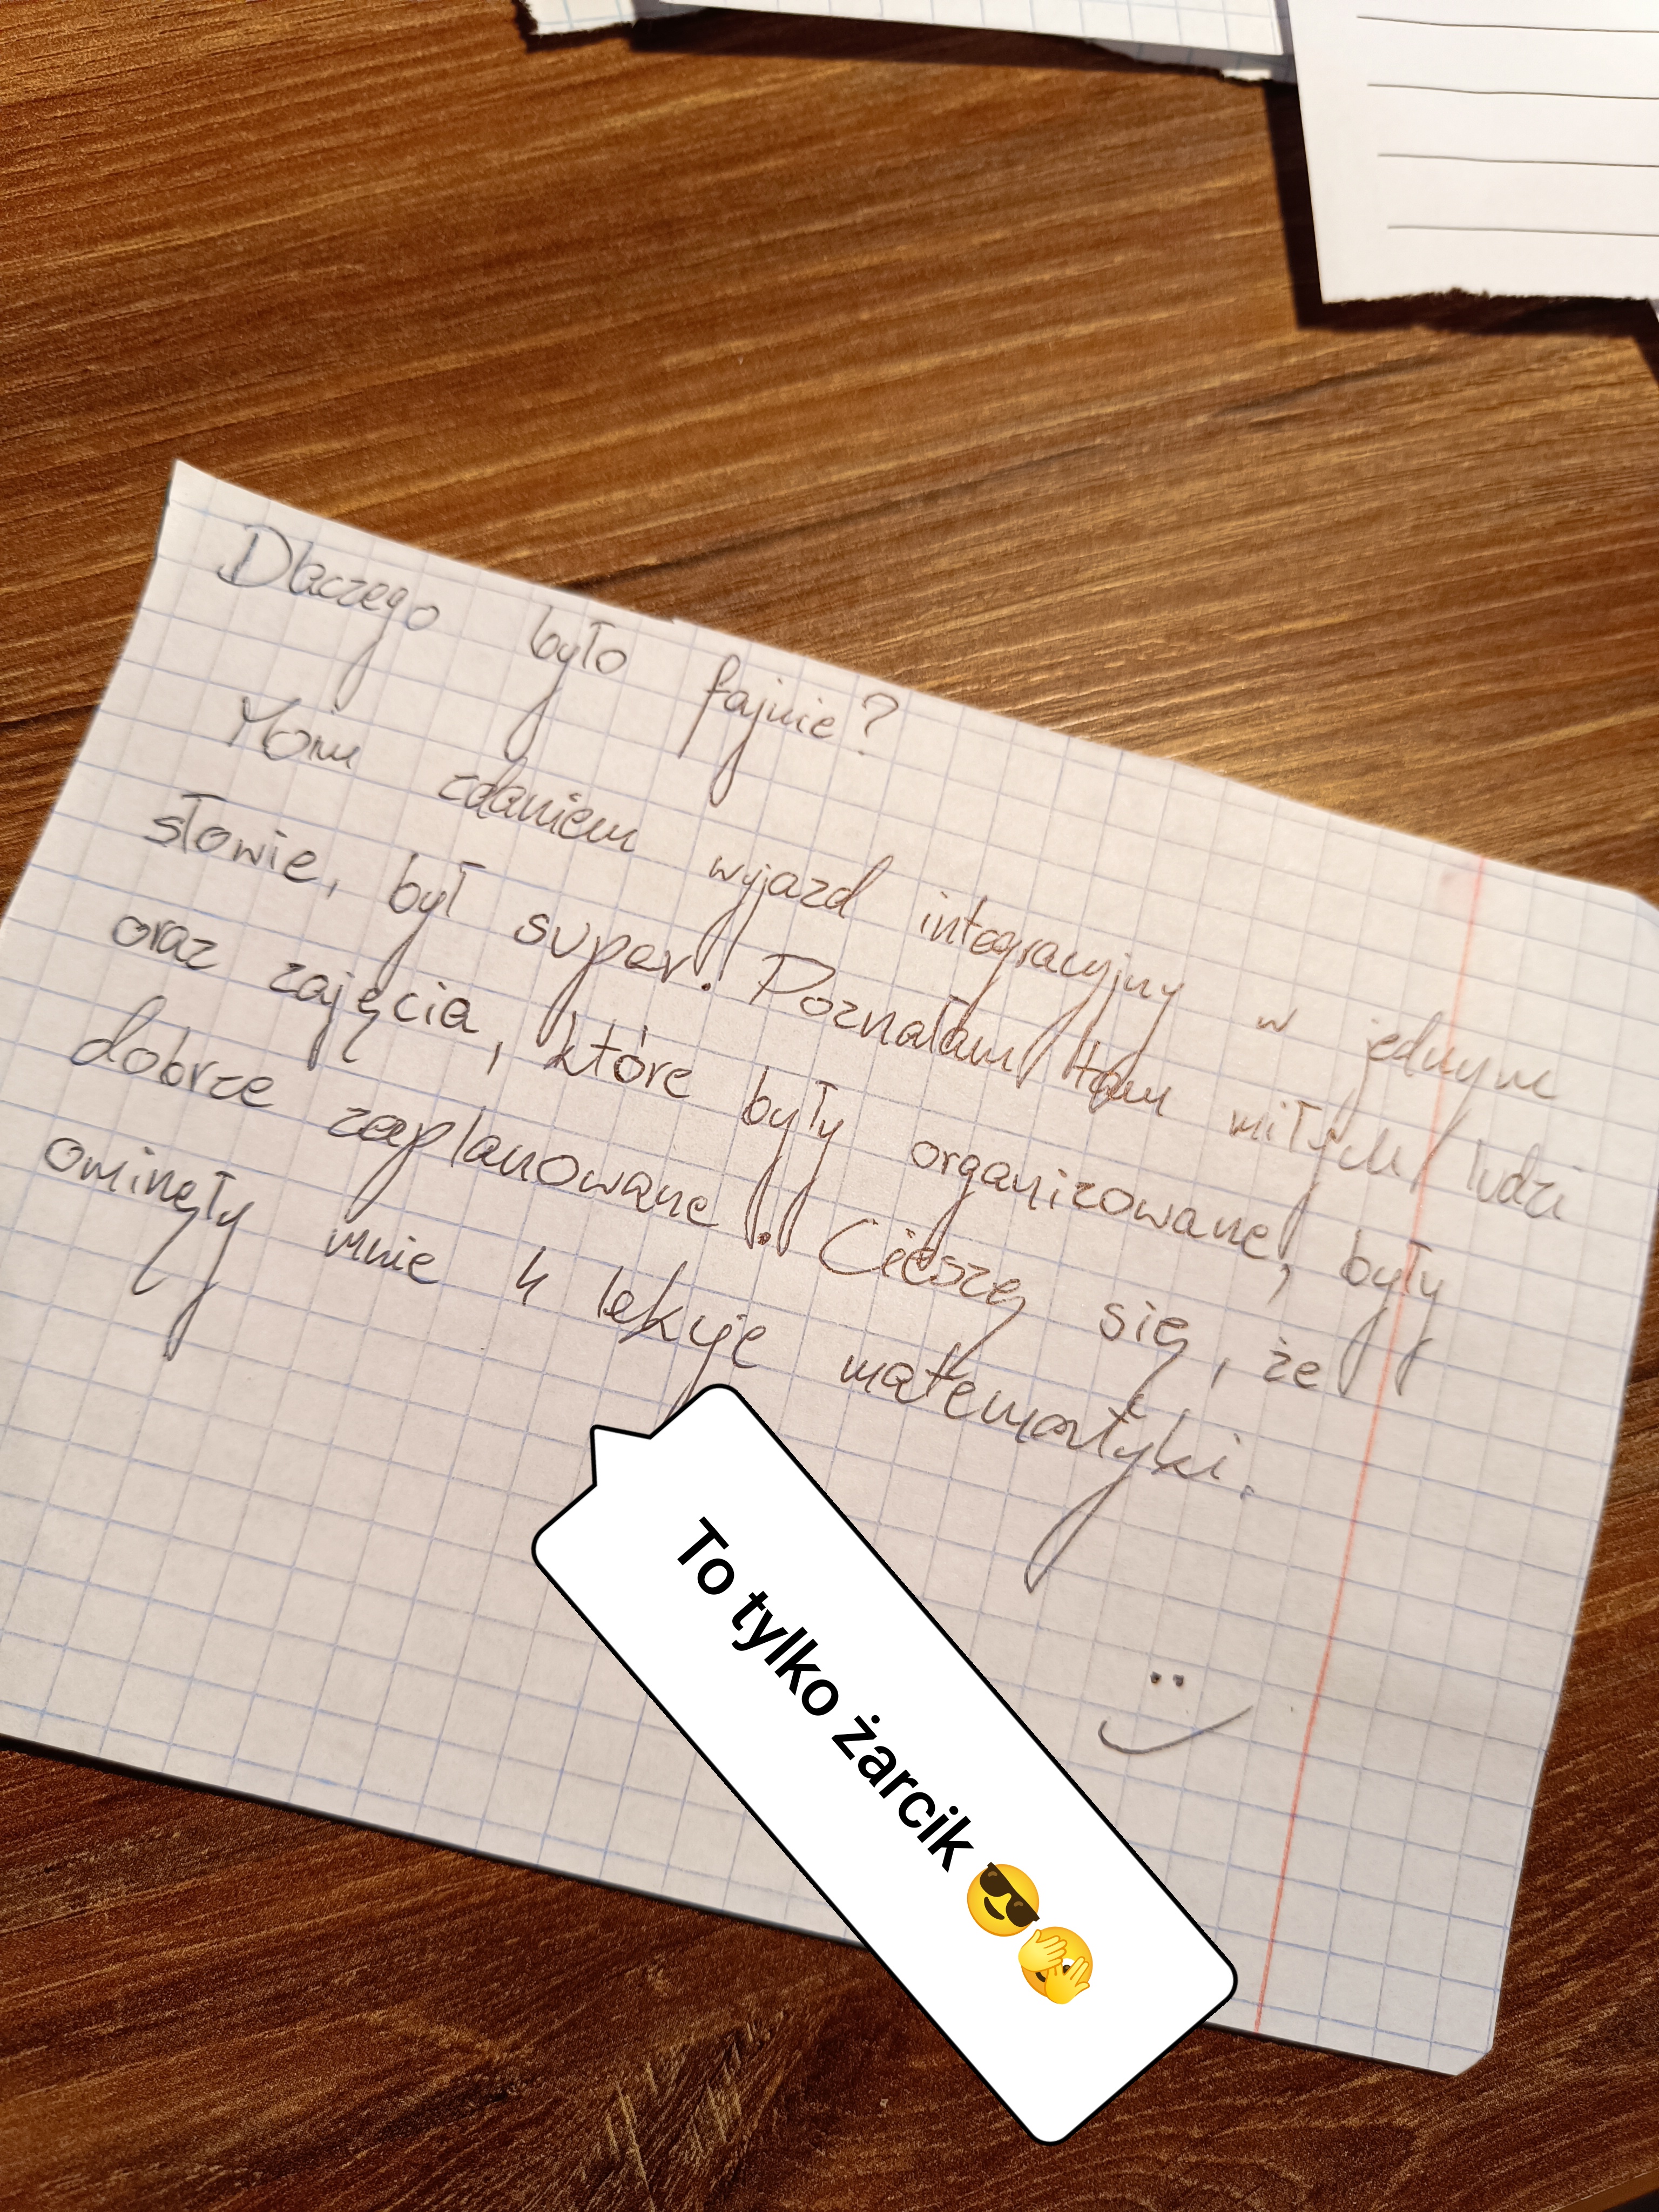 Dlaczego było fajnie?
Moim zdaniem wyjazd integracyjny w jednym
słowie, był super. Poznałam tam miłych ludzi
oraz zajęcia, które były organizowane, były
dobrze zaplanowane. Cieszę się, że
ominęły mnie 4 lekcje matematyki.
To tylko żarcik 😎🫣